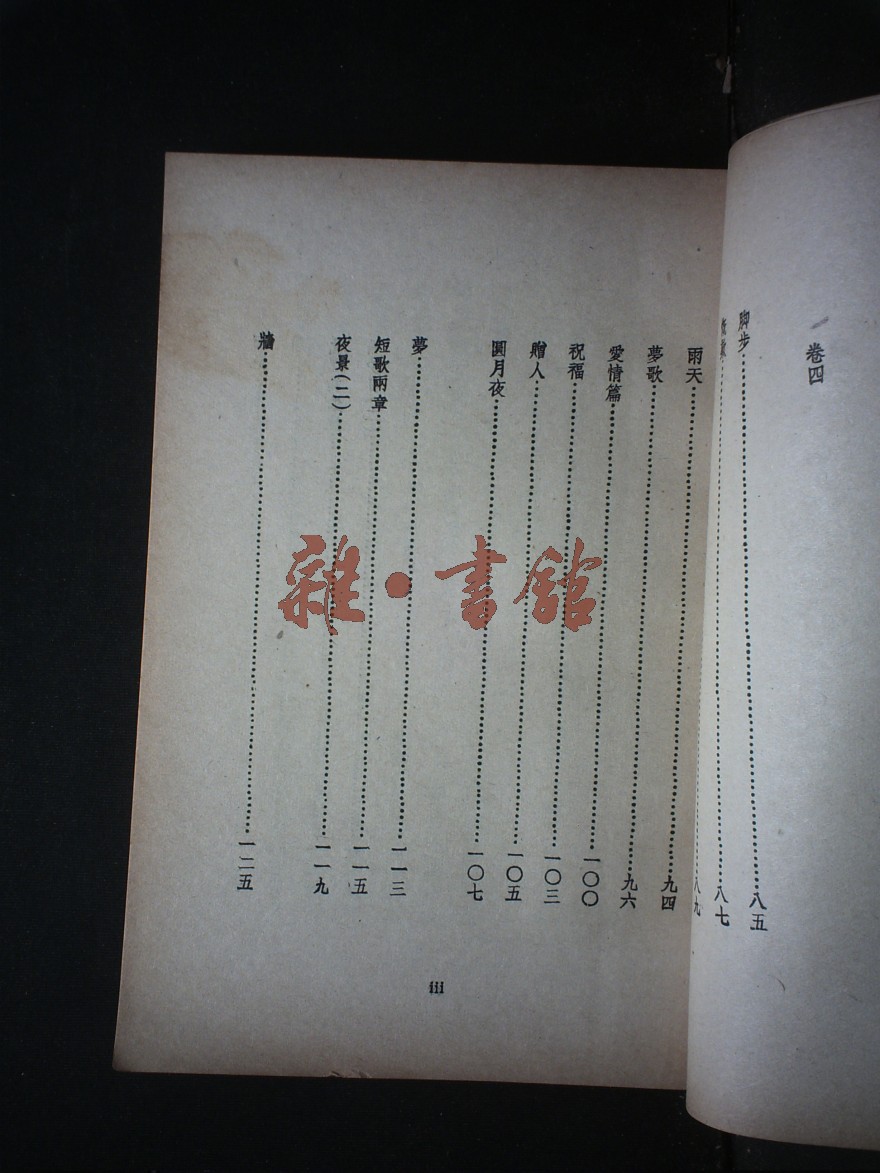 卷四
脚步…………八五
…………八七
八九
雨天…………九四
夢歌…………九六
愛情篇…………一〇〇
祝福…………一〇三
贈人…………一〇五
圓月夜…………一〇七
夢…………一一三
短歌兩章…………一一五
夜景(二)…………一一九
牆…………一二五
iii
雜·書館